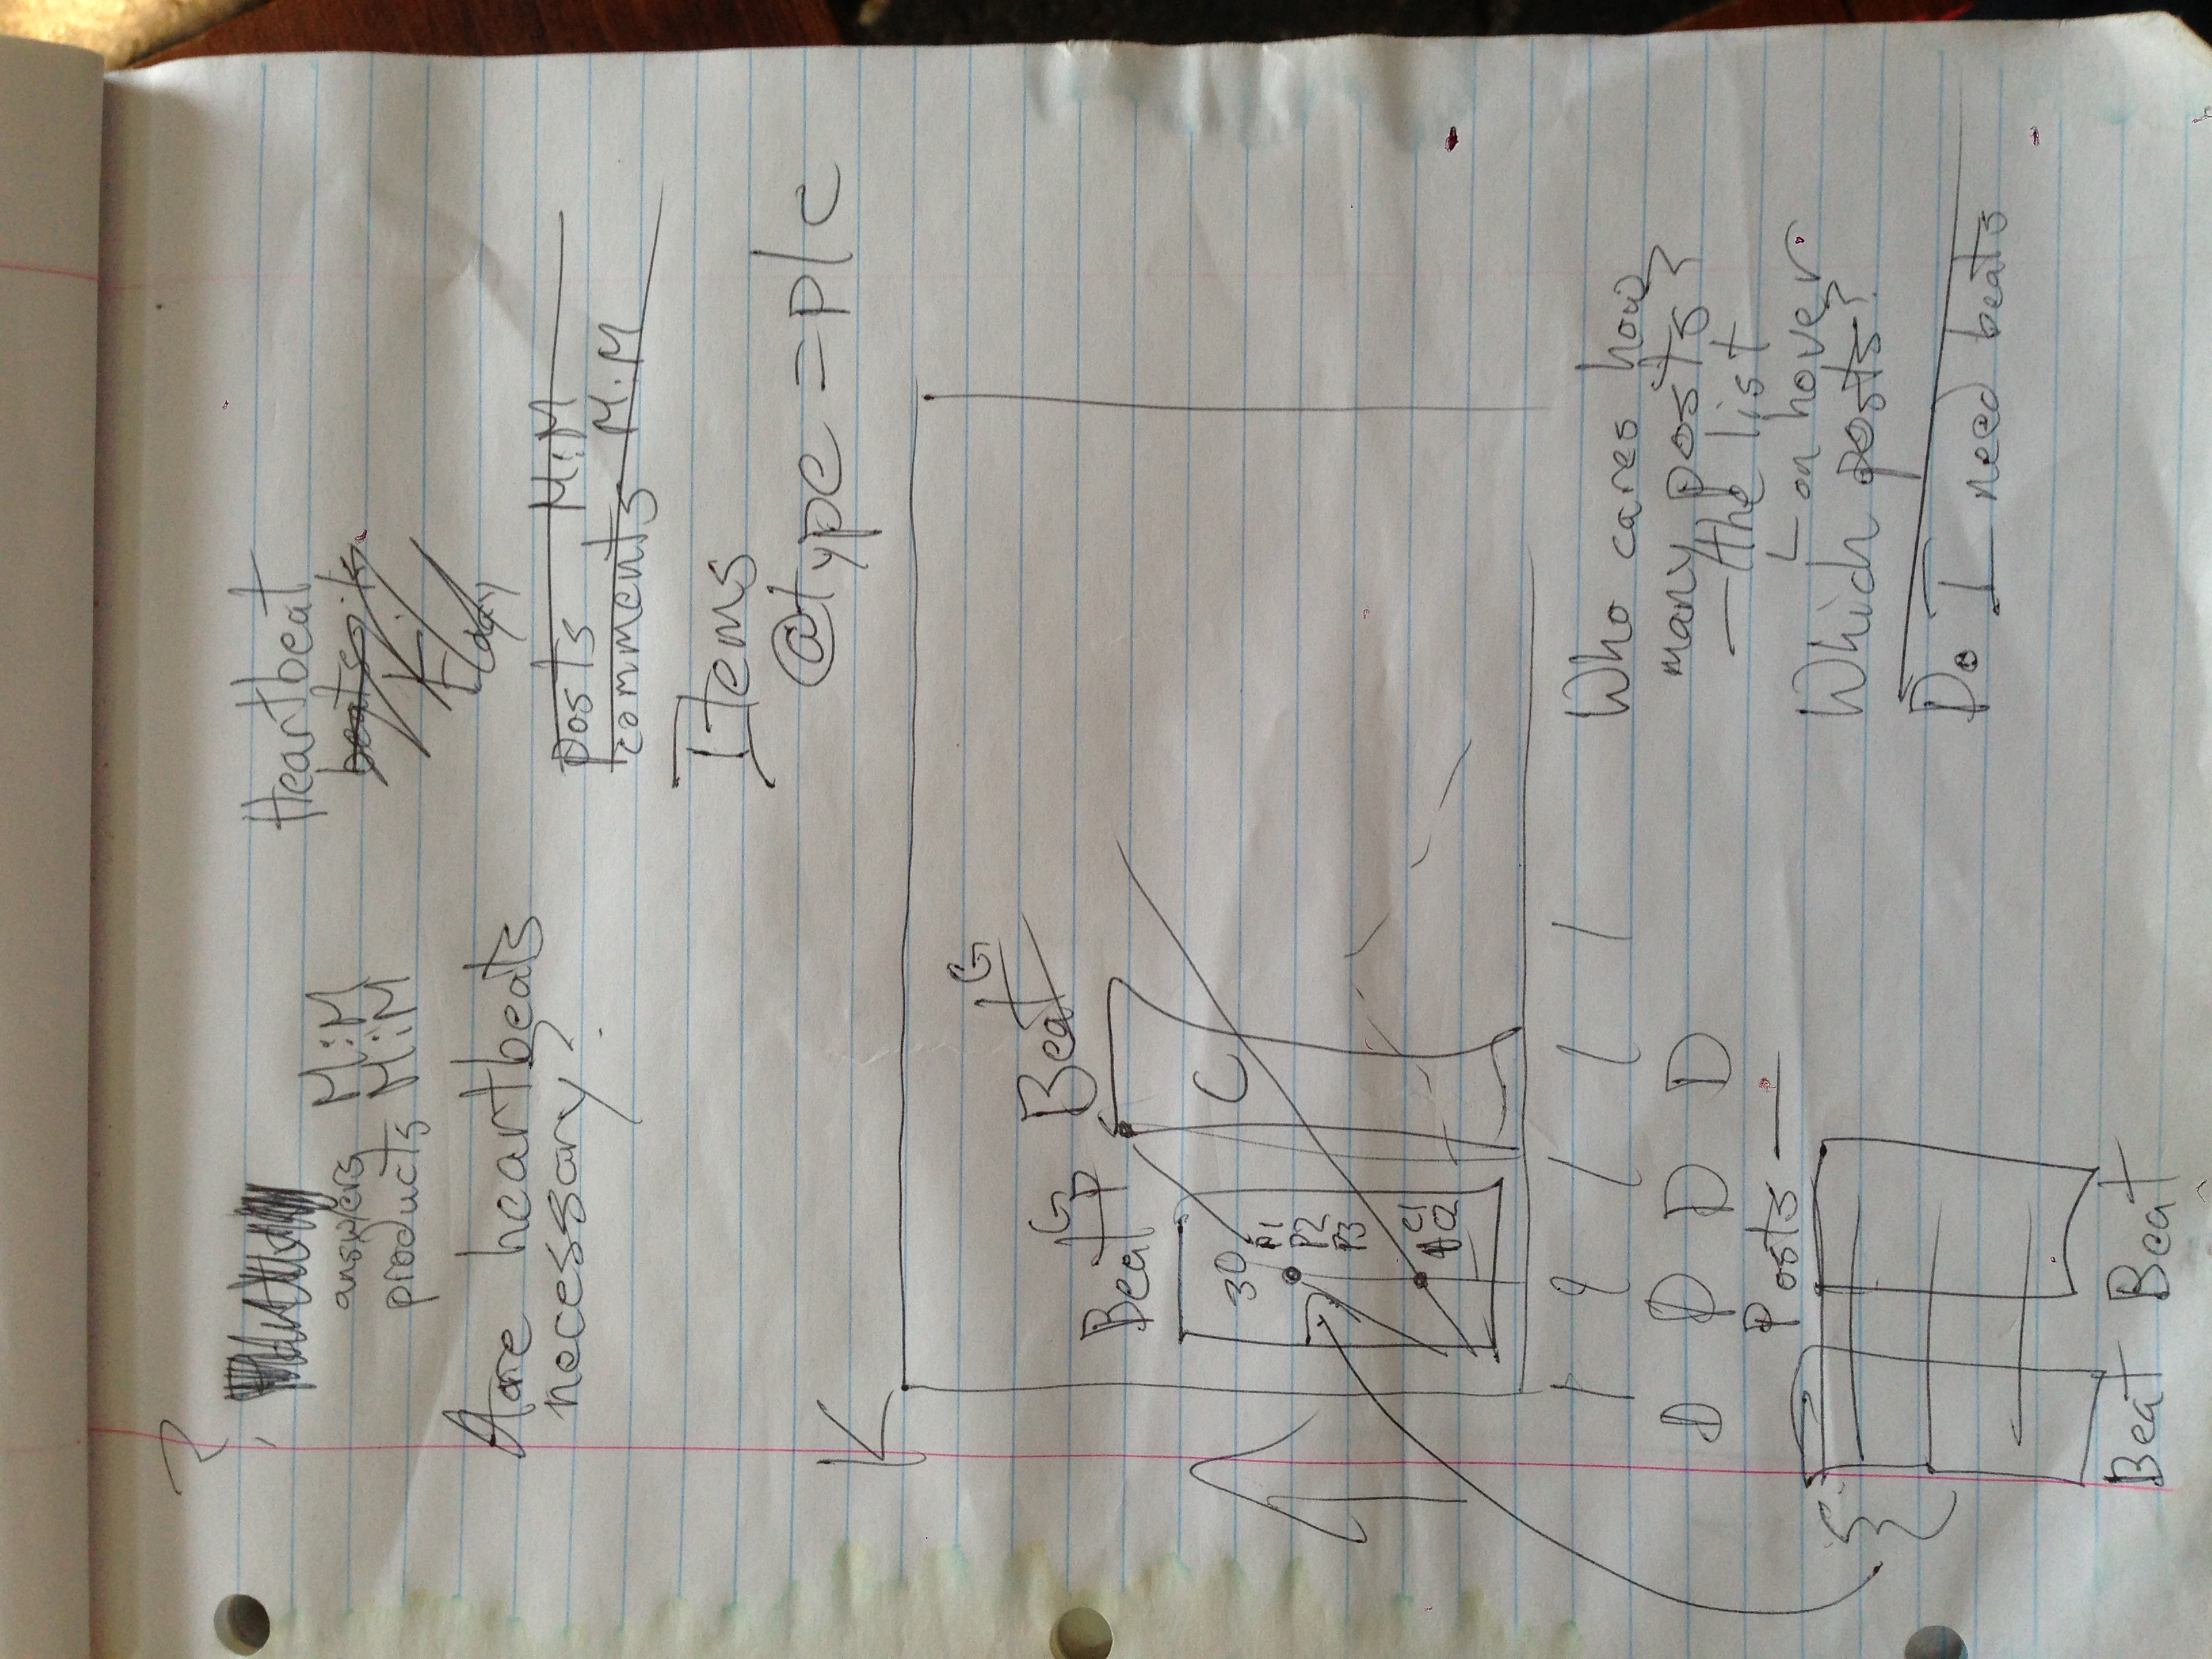 ?
answers M:M
products M:M
Are heartbeats
necessary?
Heartbeat
beats
posts M:M
comments M:M
Items
@type = p/c
K
Beat G P
Beat G
30
P1
P2
P3
C1
C2
C
D D D D
Posts —
Beat Beat
Who cares how
many posts?
— the list
on hover
Which posts?
Do I need beats